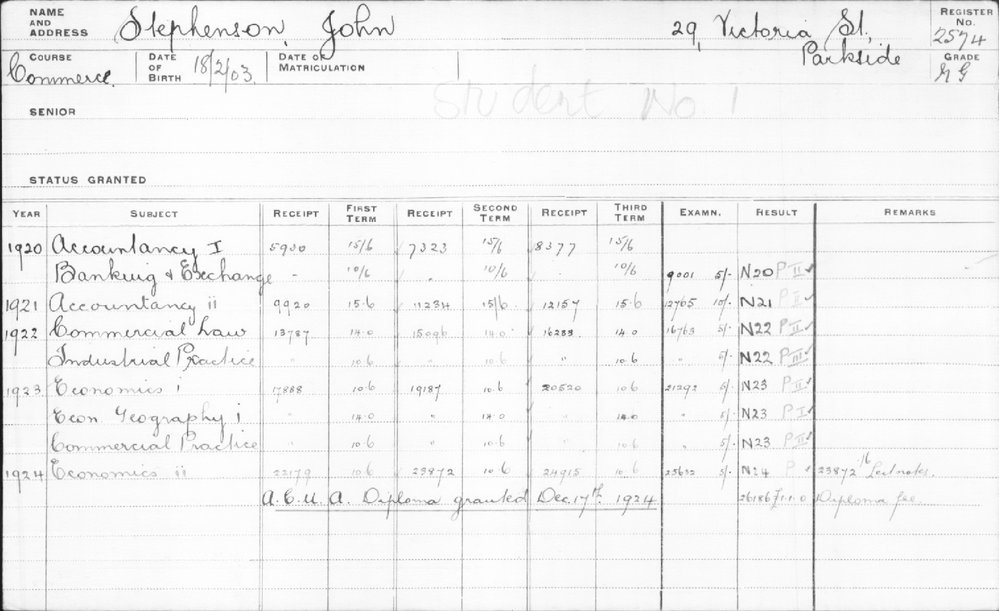 NAME AND ADDRESS Stephenson, John 29, Victoria St, Parkside REGISTER No. 2574
COURSE Commerce. DATE OF BIRTH 18/2/03. DATE OF MATRICULATION GRADE
Student No 1
SENIOR
STATUS GRANTED
YEAR SUBJECT RECEIPT FIRST TERM RECEIPT SECOND TERM RECEIPT THIRD TERM EXAMN. RESULT REMARKS
1920 Accountancy I 5930 15/6 7323 15/6 8377 15/6
Banking & Exchange " 10/6 " 10/6 10/6 9001 5/- N20 P II ✓
1921 Accountancy ii 9920 15.6 11234 15/6 12157 15.6 12765 10/- N21 P II ✓
1922 Commercial Law 13787 14.0 15096 14.0 16233 14.0 16763 5/- N22 P II ✓
Industrial Practice " 10.6 " 10.6 " 10.6 " 5/- N22 P III ✓
1923 Economics i 17888 10.6 19187 10.6 20520 10.6 21292 5/- N23 P II ✓
Econ Geography i " 14.0 " 14.0 14.0 " 5/- N23 P I ✓
Commercial Practice " 10.6 " 10.6 " 10.6 " 5/- N23 P II ✓
1924 Economics ii 22179 10.6 23872 10.6 24915 10.6 25632 5/- N24 P ✓ 23872 Lect notes.
A.C.U.A. Diploma granted Dec. 17th 1924 26186 £1.1.0 Diploma fee.